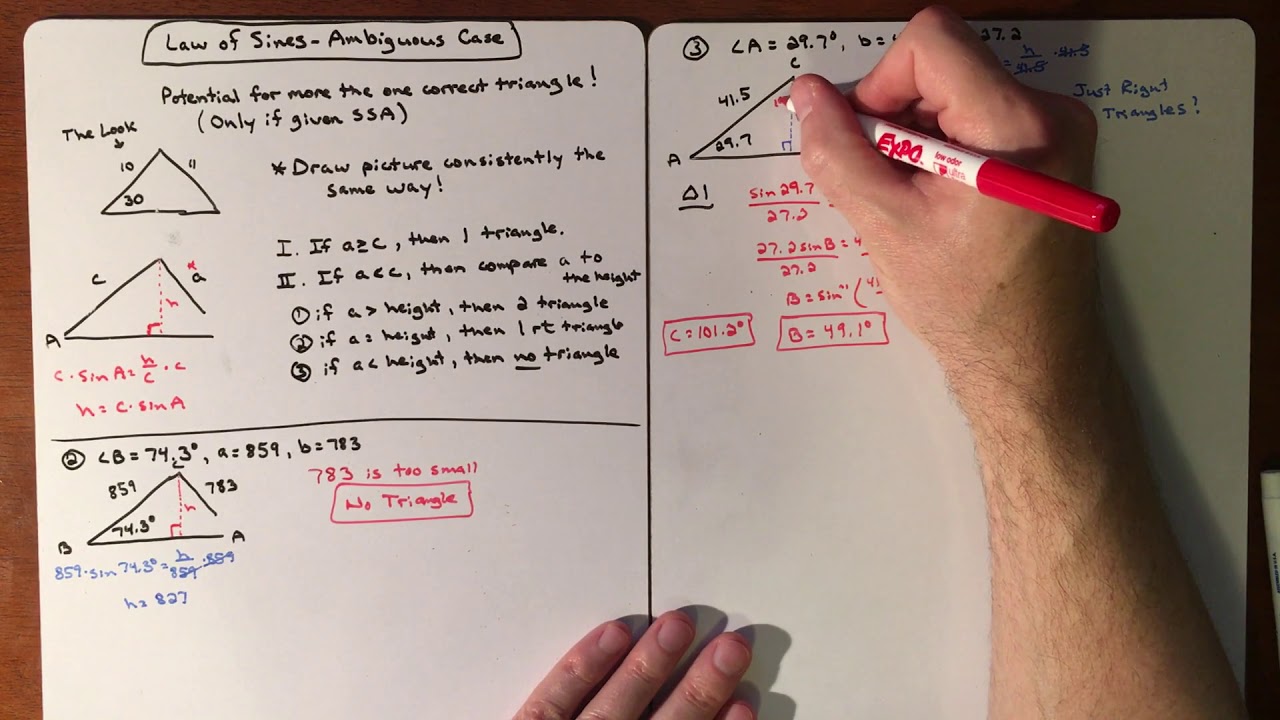 Law of Sines - Ambiguous Case
Potential for more the one correct triangle!
(Only if given SSA)
The Look
10
11
30
* Draw picture consistently the
same way!
I. If a ≥ c, then 1 triangle.
II. If a < c, then compare a to
the height
① if a > height, then 2 triangle
② if a = height, then 1 rt triangle
③ if a < height, then no triangle
c
*
a
h
A
c · sin A = h/c · c
h = c · sin A
② ∠B = 74.3°, a = 859, b = 783
C
859
783
h
74.3°
B
A
859 · sin 74.3° = h/859 · 859
h = 827
783 is too small
No Triangle
③ ∠A = 29.7°, b =
27.2
C
= h/41.5 · 41.5
41.5
Just Right
Triangles?
29.7
A
Δ1
sin 29.7
27.2
27.2 sin B = 4
27.2
B = sin⁻¹ (41
C = 101.2°
B = 49.1°
EXPO
low odor
ultra